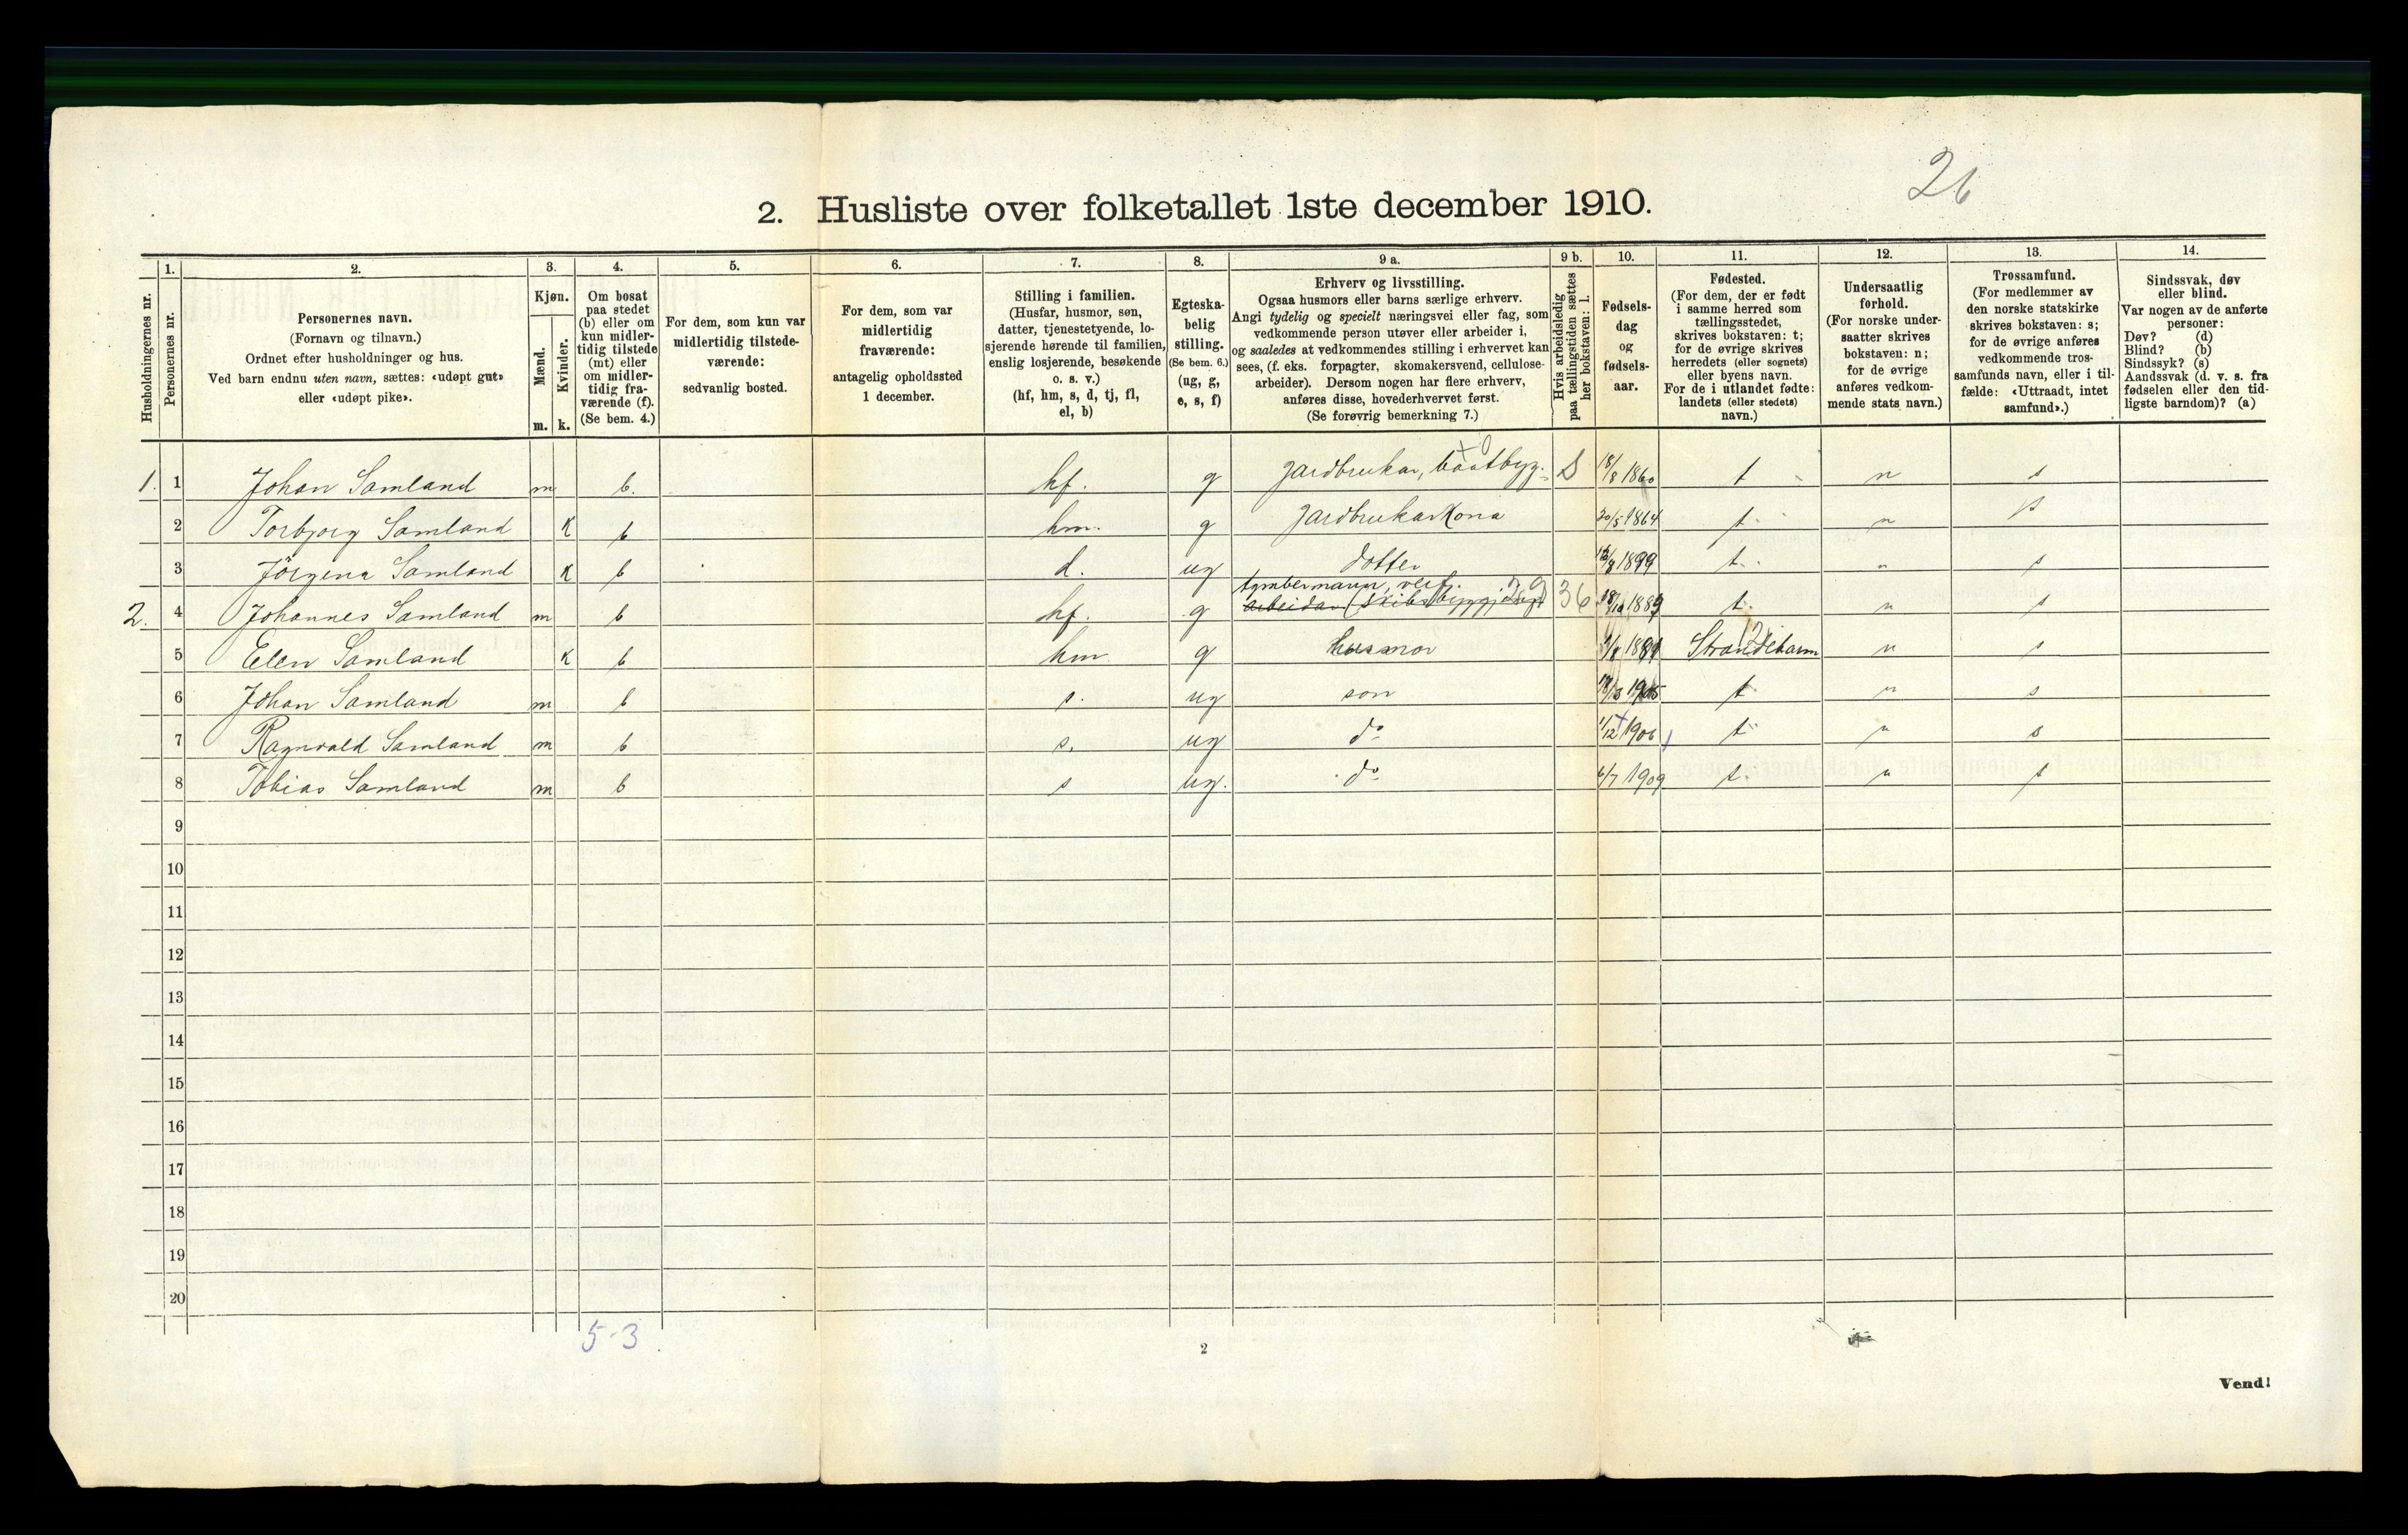 26
2. Husliste over folketallet 1ste december 1910.
Husholdningernes nr.
1. Personernes nr.
2. Personernes navn. (Fornavn og tilnavn.) Ordnet efter husholdninger og hus. Ved barn endnu uten navn, sættes: «udøpt gut» eller «udøpt pike».
3. Kjøn. Mænd. m. Kvinder. k.
4. Om bosat paa stedet (b) eller om kun midlertidig tilstede (mt) eller om midlertidig fraværende (f). (Se bem. 4.)
5. For dem, som kun var midlertidig tilstedeværende: sedvanlig bosted.
6. For dem, som var midlertidig fraværende: antagelig opholdssted 1 december.
7. Stilling i familien. (Husfar, husmor, søn, datter, tjenestetyende, losjerende hørende til familien, enslig losjerende, besøkende o. s. v.) (hf, hm, s, d, tj, fl, el, b)
8. Egteskabelig stilling. (Se bem. 6.) (ug, g, e, s, f)
9 a. Erhverv og livsstilling. Ogsaa husmors eller barns særlige erhverv. Angi tydelig og specielt næringsvei eller fag, som vedkommende person utøver eller arbeider i, og saaledes at vedkommendes stilling i erhvervet kan sees, (f. eks. forpagter, skomakersvend, cellulosearbeider). Dersom nogen har flere erhverv, anføres disse, hovederhvervet først. (Se forøvrig bemerkning 7.)
9 b. Hvis arbeidsledig paa tællingstiden sættes her bokstaven: l.
10. Fødselsdag og fødselsaar.
11. Fødested. (For dem, der er født i samme herred som tællingsstedet, skrives bokstaven: t; for de øvrige skrives herredets (eller sognets) eller byens navn. For de i utlandet fødte: landets (eller stedets) navn.)
12. Undersaatlig forhold. (For norske undersaatter skrives bokstaven: n; for de øvrige anføres vedkommende stats navn.)
13. Trossamfund. (For medlemmer av den norske statskirke skrives bokstaven: s; for de øvrige anføres vedkommende trossamfunds navn, eller i tilfælde: «Uttraadt, intet samfund».)
14. Sindssvak, døv eller blind. Var nogen av de anførte personer: Døv? (d) Blind? (b) Sindssyk? (s) Aandssvak (d. v. s. fra fødselen eller den tidligste barndom)? (a)
1. 1 Johan Samland m b. hf. g jardbrukar, baatbyg. S 18/8 1860 t n s
2 Torbjorg Samland K b hm. g jardbrukarkona 30/5 1864 t. n s
3 Jörgena Samland K b d. ug dotter 1899 t. n s
2. 4 Johannes Samland m b hf. g tymbermann, verft. arbeidar (skibsbyggjing) 36 1889 t. n s
5 Elen Samland K b hm g husmor Strandebarm n s
6 Johan Samland m b s. ug son 1905 t. n s
7 Ragnvald Samland m b s. ug do 1/12 1906 t n s
8 Tobias Samland m b s ug. do 6/7 1909 t. n s
9
10
11
12
13
14
15
16
17
18
19
20
5-3
2
Vend!